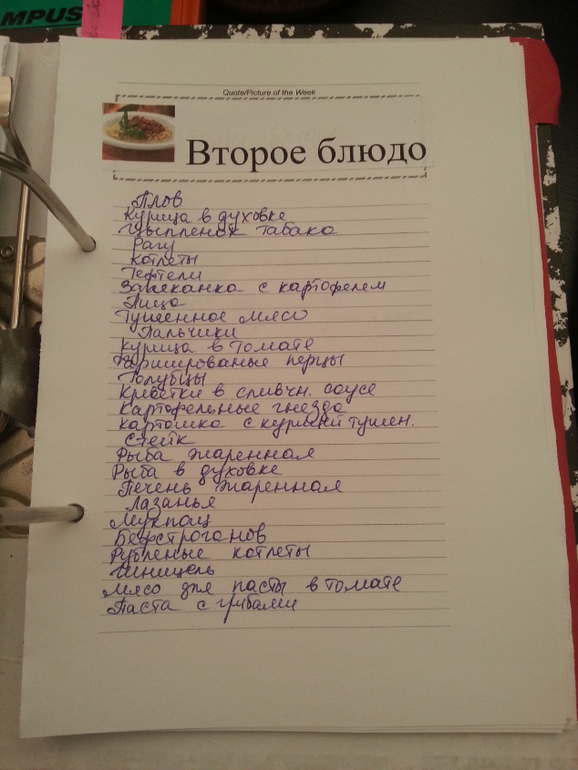 MPUS
Quote/Picture of the Week
Второе блюдо
Плов
Курица в духовке
Цыпленок табака
Рагу
Котлеты
Тефтели
Запеканка с картофелем
Пицца
Тушенное мясо
Пальчики
Курица в томате
Фаршированые перцы
Голубцы
Креветки в сливчн. соусе
Картофельные гнезда
Картошка с курицей тушен.
Стейк
Рыба жаренная
Рыба в духовке
Печень жаренная
Лазанья
Бефстроганов
Рубленые котлеты
Шницель
Мясо для пасты в томате
Паста с грибами